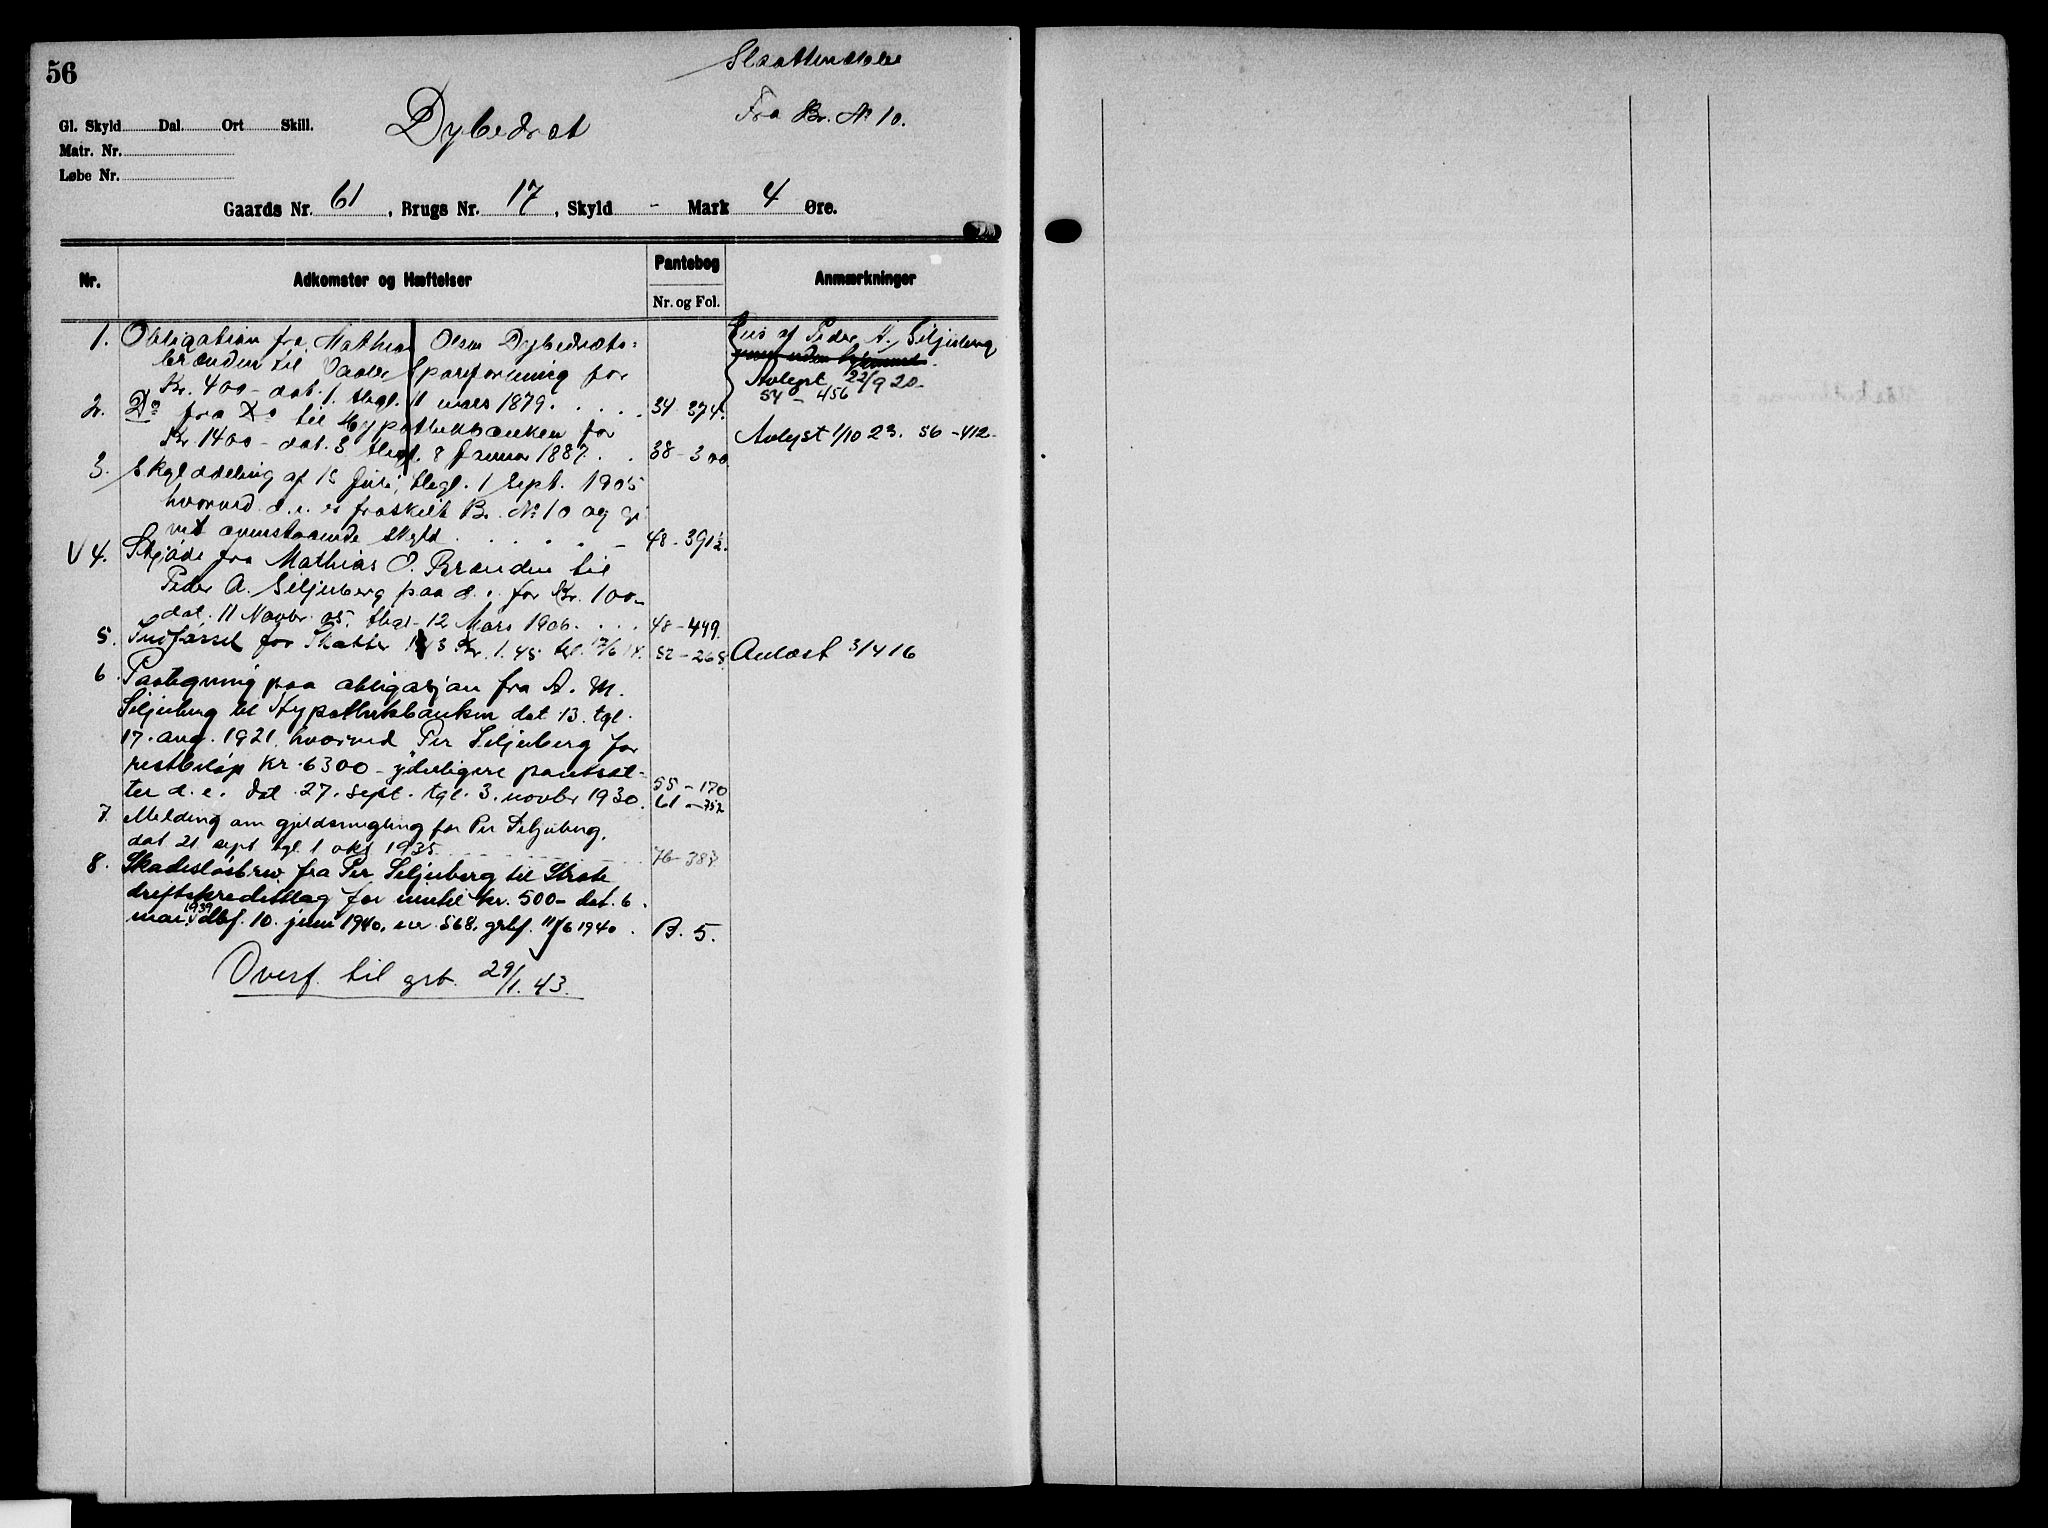 56
Slaattemoblee
Fra Br. № 10.
Gl. Skyld Dal. Ort Skill.
Dybedræt
Matr. Nr.
Løbe Nr.
Gaards Nr. 61, Brugs Nr. 17, Skyld - Mark 4 Øre.
Nr. Adkomster og Hæftelser Pantebog Anmærkninger
Nr. og Fol.
1. Obligation fra Mathias Olsen Dybedræts- Eies af Peder A. Siljuberg
brænden til Vaaler Spareforening for
Kr. 400 - dat. 1. thgl. 11 mars 1879. 34 - 374. Avlyst 22/9 20 -
54 - 456
2. Do fra Do til Hypothekbanken for
Kr. 1400 - dat. 3 thgl. 8 Januar 1887. 38 - 300 Avlyst 1/10 23. 56 - 412 -
3. Skylddeling af 15 Juli, thgl. 1 Sept. 1905
hvorved d. e. er fraskilt Br. № 10 og gi
vet ovenstaaende skyld 48 - 391½.
V 4. Skjøde fra Mathias O. Brænden til
Peder A. Siljuberg paa d. e. for Kr. 100 -
dat. 11 Novbr. 05. thgl. 12 Mars 1906. 48 - 449.
5. Indførsel for Skatter 1913 Kr. 1.45 tgl. 17/6 14. 52 - 268. Avlæst 3/4 16
6. Paategning paa obligasjon fra A. M.
Siljuberg til Hypothekbanken dat. 13. tgl.
17. aug. 1921, hvorved Per Siljuberg for
restbeløp kr. 6300 - yderligere pantsæt-
ter d. e. dat. 27. sept. tgl. 3. novbr 1930. 55 - 170
61 - 752
7. Melding om gjeldsmegling for Per Siljuberg,
dat 21 sept tgl. 1 okt 1935 76 - 387
8. Skadesløsbrev fra Per Siljuberg til Statens
driftskredittlag for inntil kr. 500 - dat. 6
mai 1939 dbf. 10. juni 1940, nr. 568, grbf. 11/6 1940 B. 5.
Overf. til grb. 29/1. 43.